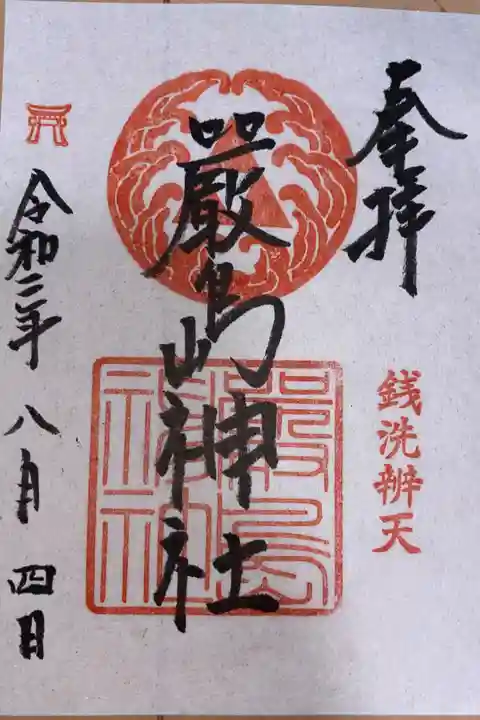 奉拝
銭洗辨天
嚴島神社
嚴島
神社
令和二年八月四日